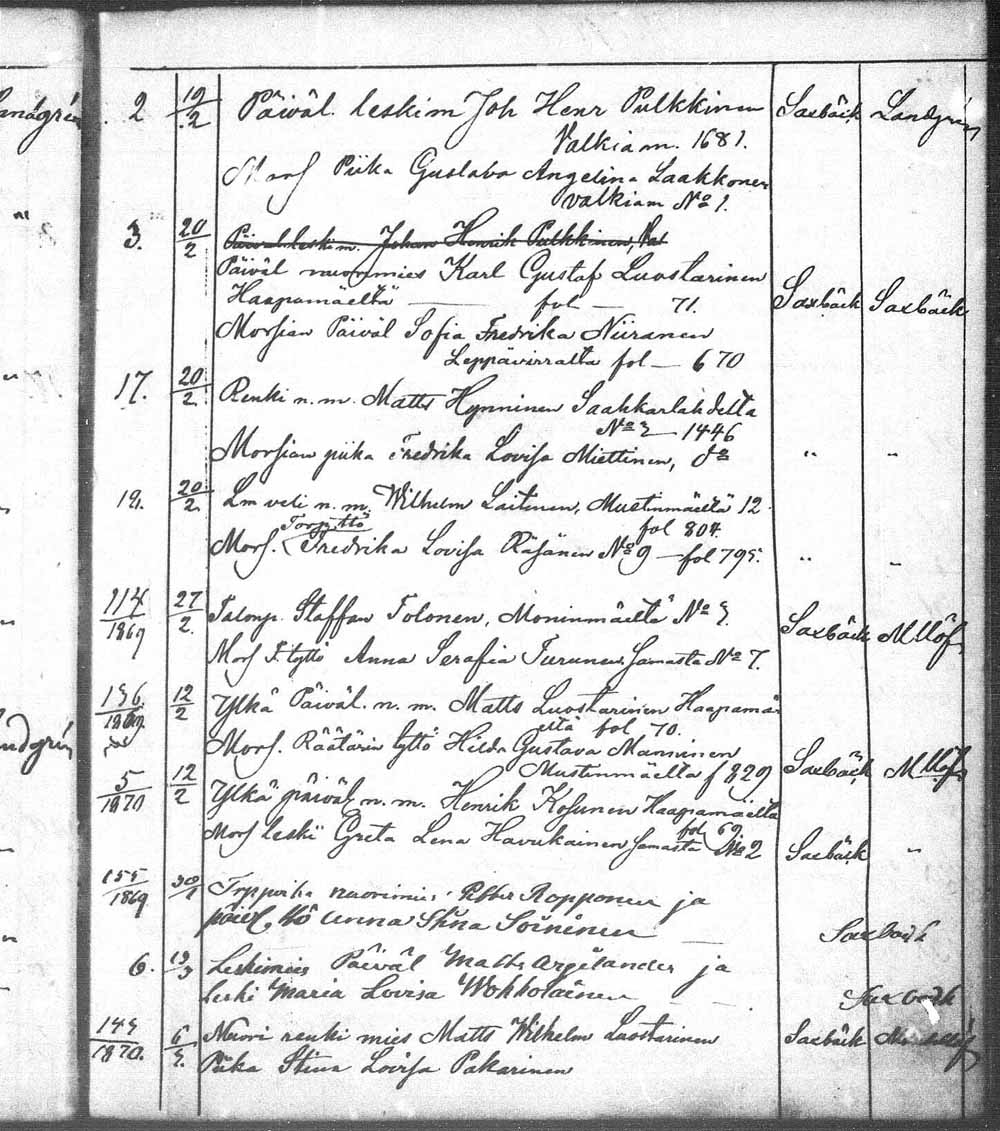 2 19/2 Päiväl. leskim Joh Henr Pulkkinen Saxbäck Landgrén
Valkiam. 1681.
Mors Piika Gustava Angelina Laakkonen
Valkiam No 1.
3. 20/2 Päiväl leski m. Johan Henrik Pulkkinen, Val
Päiväl nuorimies Karl Gustaf Luostarinen
Haapamäeltä — fol — 71. Saxbäck Saxbäck
Morsian Päiväl Sofia Fredrika Niiranen
Leppävirralta fol — 670
17. 20/2 Renki n. m. Matts Hynninen Saahkarlahdelta
No 2 — 1446
Morsian piika Fredrika Lovisa Miettinen, do " "
19. 20/2 Lm veli n. m. Wilhelm Laitinen, Mustinmäeltä 12
fol 804.
Torp. ttö
Mors. Fredrika Lovisa Räsänen No 9 — fol 795. " "
114/1869 27/2. Talonp. Staffan Tolonen, Moninmäeltä No 7. Saxbäck M Llöf
Mors T. tyttö Anna Serafia Turunen Samasta No 7.
136/1869 12/2 Ylkä Päiväl. n. m. Matts Luostarinen Haapamä
eltä fol 70.
Mors. Räätärin tyttö Hilda Gustava Manninen
Mustinmäeltä f 829 Saxbäck M Llöf
5/1870 12/2 Ylkä päiväl n. m. Henrik Kosunen Haapamäeltä
fol 69.
Mors leski Greta Lena Havukainen Samasta No 2 Saxbäck "
155/1869 30/1 nuorimies Petter Ropponen ja
päiv ttö Anna Stina Soininen — Saxbäck
6. 13/3 Leskimies Päiväl Matts Argilander ja
leski Maria Lovisa Wokkolainen — Saxbäck
145/1870. 6/2. Nuori renki mies Matts Wilhelm Luostarinen Saxbäck
Piika Stina Lovisa Pakarinen